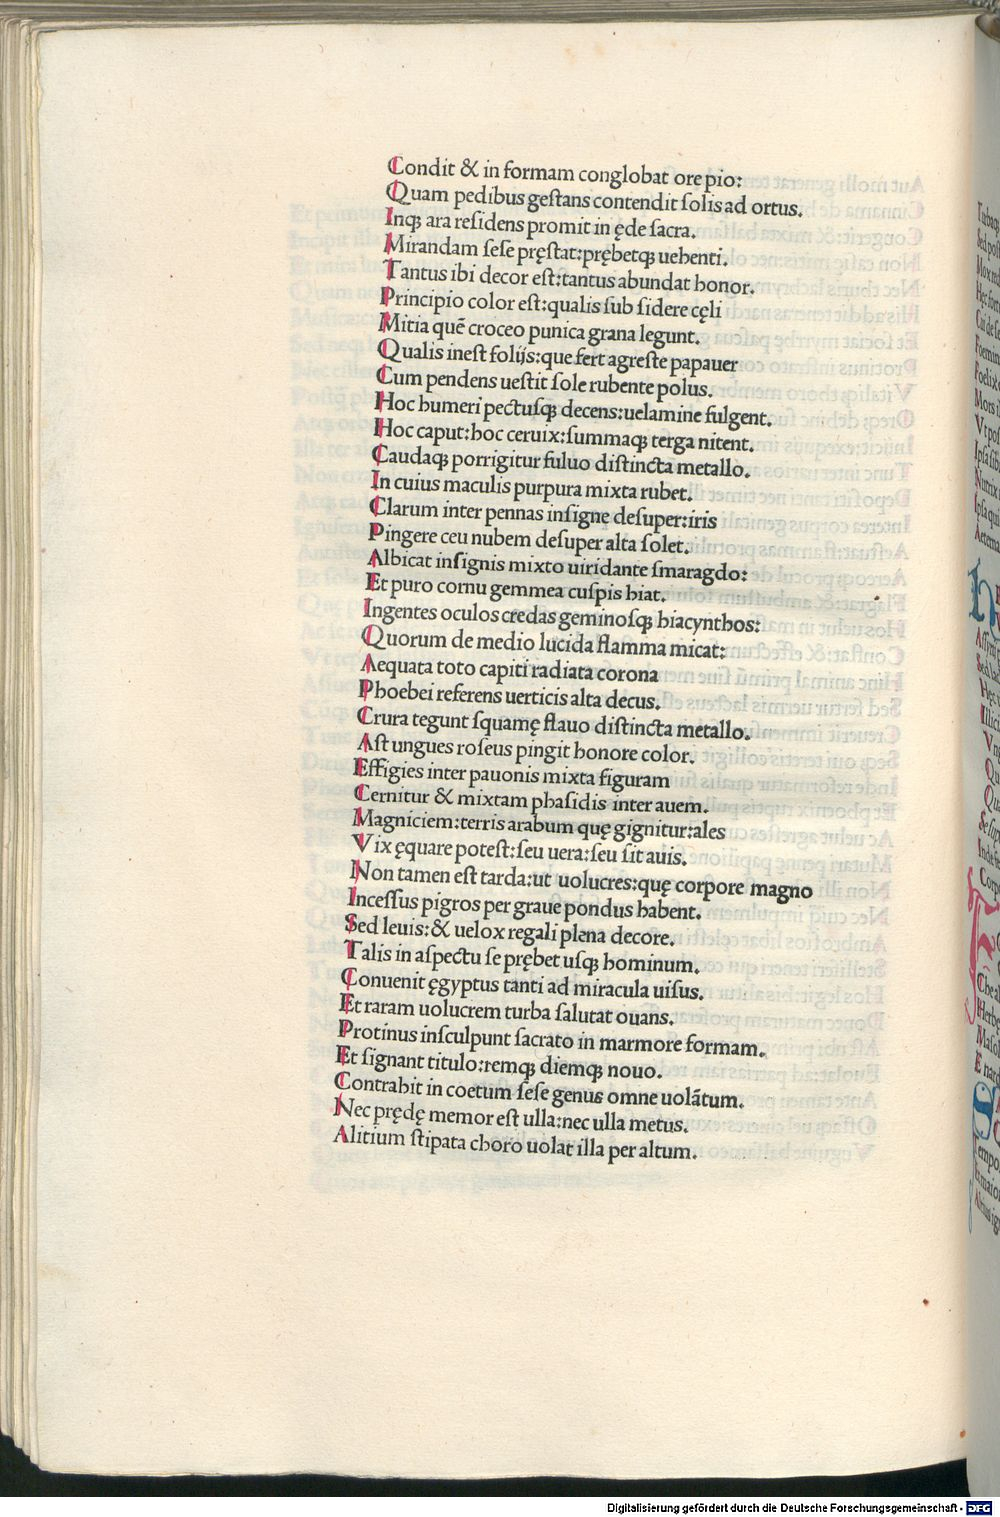 Condit & in formam conglobat ore pio:
Quam pedibus geſtans contendit ſolis ad ortus.
Inqꝫ ara reſidens promit in ęde ſacra.
Mirandam ſeſe pręſtat:prębetqꝫ uehenti.
Tantus ibi decor eſt:tantus abundat honor.
Principio color eſt:qualis ſub ſidere cęli
Mitia quē croceo punica grana legunt.
Qualis ineſt folijs:que fert agreſte papauer
Cum pendens ueſtit ſole rubente polus.
Hoc humeri pectuſqꝫ decens:uelamine fulgent.
Hoc caput:hoc ceruix:ſummaqꝫ terga nitent.
Caudaqꝫ porrigitur fuluo diſtincta metallo.
In cuius maculis purpura mixta rubet.
Clarum inter pennas inſigne deſuper:iris
Pingere ceu nubem deſuper alta ſolet.
Albicat inſignis mixto uiridante ſmaragdo:
Et puro cornu gemmea cuſpis hiat.
Ingentes oculos credas geminoſqꝫ hiacynthos:
Quorum de medio lucida flamma micat:
Aequata toto capiti radiata corona
Phoebei referens uerticis alta decus.
Crura tegunt ſquamę flauo diſtincta metallo.
Aſt ungues roſeus pingit honore color.
Effigies inter pauonis mixta figuram
Cernitur & mixtam phaſidis inter auem.
Magniciem:terris arabum quę gignitur:ales
Vix ęquare poteſt:ſeu uera:ſeu ſit auis.
Non tamen eſt tarda:ut uolucres:quę corpore magno
Inceſſus pigros per graue pondus habent.
Sed leuis:& uelox regali plena decore.
Talis in aſpectu ſe prębet uſqꝫ hominum.
Conuenit ęgyptus tanti ad miracula uiſus.
Et raram uolucrem turba ſalutat ouans.
Protinus inſculpunt ſacrato in marmore formam.
Et ſignant titulo:remqꝫ diemqꝫ nouo.
Contrahit in coetum ſeſe genus omne uolātum.
Nec prędę memor eſt ulla:nec ulla metus.
Alitium ſtipata choro uolat illa per altum.
Digitalisierung gefördert durch die Deutsche Forschungsgemeinschaft - DFG